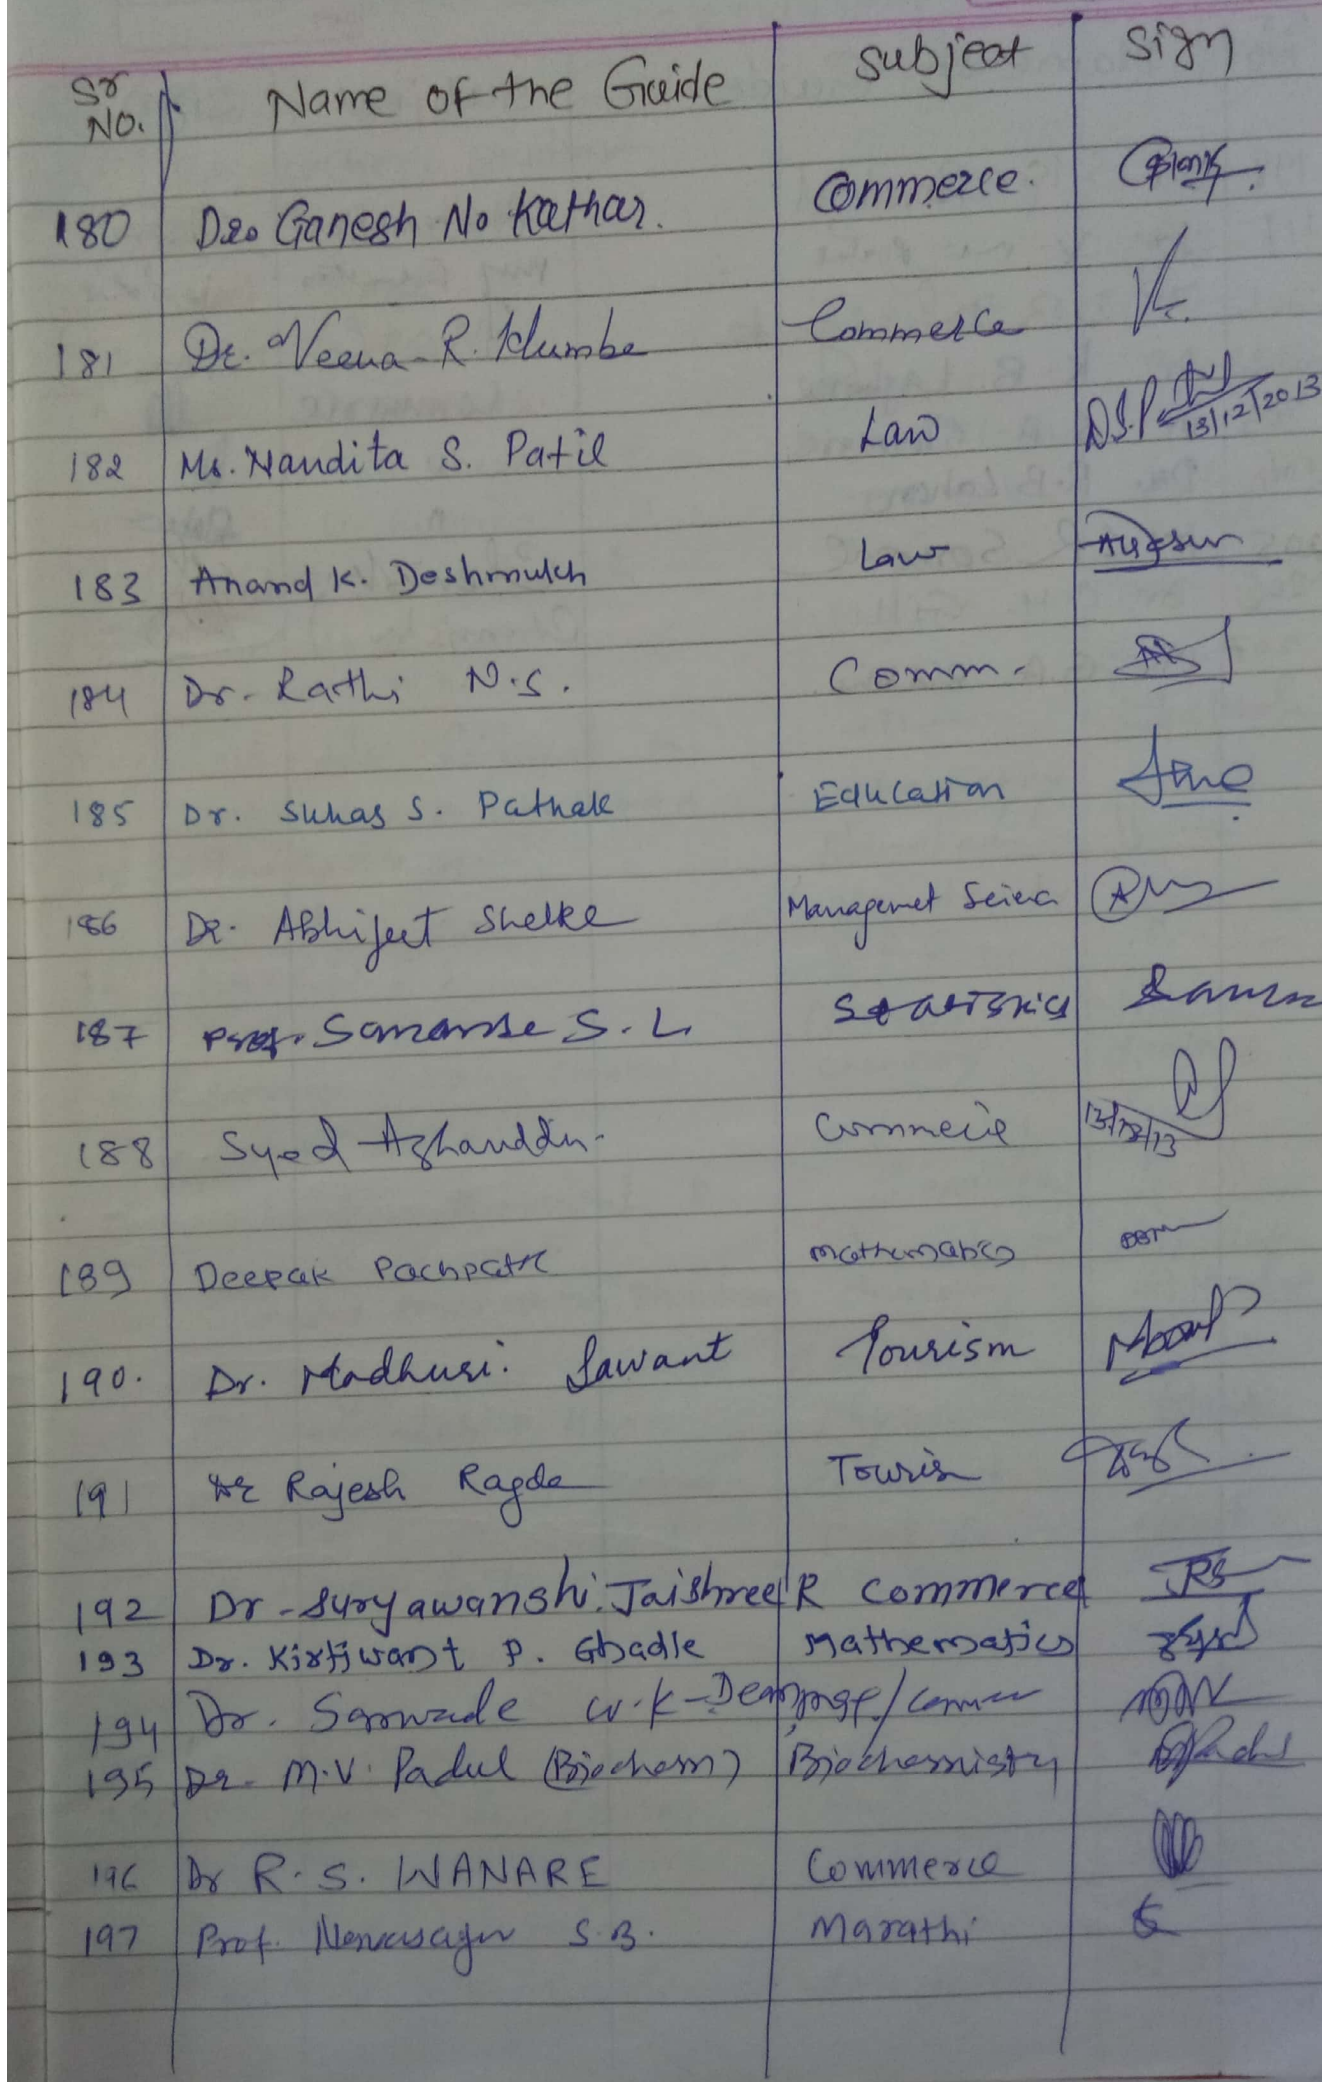 Sr No. Name of the Guide Subject Sign
180 Dr. Ganesh N. Kathar. Commerce.
181 Dr. Veena R. Humbe Commerce
182 Ms. Nandita S. Patil Law D.S.P 13/12/2013
183 Anand K. Deshmukh Law
184 Dr. Rathi N.S. Comm.
185 Dr. Suhas S. Pathak Education
186 Dr. Abhijeet Shelke Managemet
187 Prof. S.L. Statistics
188 Syed Commerce 13/12/13
189 Deepak Mathematics
190. Dr. Madhuri. Sawant Tourism
191 Dr Rajesh Ragde
192 Dr. Suryawanshi. Jaishree R Commerce JRS
193 Dr. Kirtiwant P. Ghadle Mathematics
194 Dr. Sarwade W.K-
195 Dr. M.V. Padul (Biochem) Biochemistry
196 Dr R.S. WANARE Commerce
197 Prof. S.B. Marathi